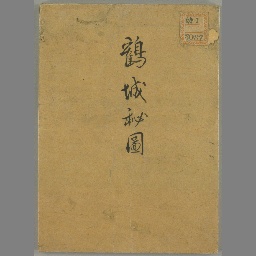 鶴城秘圖